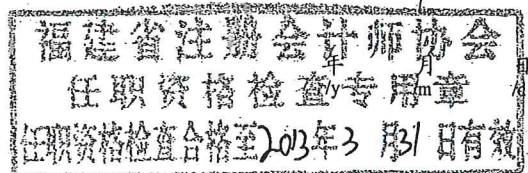 福建省注册会计师协会
年 月 日
任职资格检查专用章
/y /m /d
任职资格检查合格至2013年3月31日有效